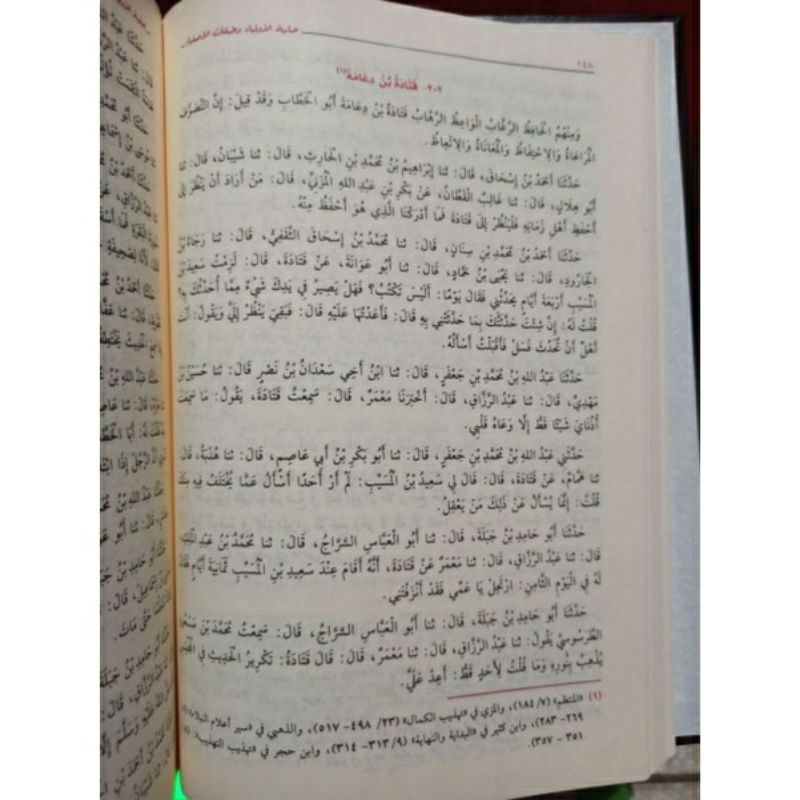 ١٤٨
حلية الأولياء وطبقات الأصفياء
٢٠٢- قَتَادَةُ بْنُ دِعَامَةَ(١)
وَمِنْهُمُ الْحَافِظُ الرَّغَّابُ الْوَاعِظُ الرَّهَّابُ قَتَادَةُ بْنُ دِعَامَةَ أَبُو الْخَطَّابِ وَقَدْ قِيلَ: إِنَّ التَّصَوُّفَ
الْمُرَاعَاةُ وَالِاحْتِفَاظُ وَالْمُعَانَاةُ وَالِاتِّعَاظُ.
حَدَّثَنَا أَحْمَدُ بْنُ إِسْحَاقَ، قَالَ: ثنا إِبْرَاهِيمُ بْنُ مُحَمَّدِ بْنِ الْحَارِثِ، قَالَ: ثنا شَيْبَانُ، قَالَ: ثنا
أَبُو هِلَالٍ، قَالَ: ثنا غَالِبٌ الْقَطَّانُ، عَنْ بَكْرِ بْنِ عَبْدِ اللهِ الْمُزَنِيِّ، قَالَ: مَنْ أَرَادَ أَنْ يَنْظُرَ إِلَى
أَحْفَظِ أَهْلِ زَمَانِهِ فَلْيَنْظُرْ إِلَى قَتَادَةَ فَمَا أَدْرَكْنَا الَّذِي هُوَ أَحْفَظُ مِنْهُ.
حَدَّثَنَا أَحْمَدُ بْنُ مُحَمَّدِ بْنِ سِنَانٍ، قَالَ: ثنا مُحَمَّدُ بْنُ إِسْحَاقَ الثَّقَفِيُّ، قَالَ: ثنا رَجَاءُ بْنُ
الْجَارُودِ، قَالَ: ثنا يَحْيَى بْنُ حَمَّادٍ، قَالَ: ثنا أَبُو عَوَانَةَ، عَنْ قَتَادَةَ، قَالَ: لَزِمْتُ سَعِيدَ بْنَ
الْمُسَيِّبِ أَرْبَعَةَ أَيَّامٍ يُحَدِّثُنِي فَقَالَ يَوْمًا: أَلَيْسَ تَكْتُبُ؟ فَهَلْ يَصِيرُ فِي يَدِكَ شَيْءٌ مِمَّا أُحَدِّثُكَ بِهِ؟
قُلْتُ لَهُ: إِنْ شِئْتَ حَدَّثْتُكَ بِمَا حَدَّثْتَنِي بِهِ قَالَ: فَأَعَدْتُهَا عَلَيْهِ قَالَ: فَبَقِيَ يَنْظُرُ إِلَيَّ وَيَقُولُ: أَنْتَ
أَهْلٌ أَنْ تُحَدَّثَ فَسَلْ فَأَقْبَلْتُ أَسْأَلُهُ.
حَدَّثَنَا عَبْدُ اللهِ بْنُ مُحَمَّدِ بْنِ جَعْفَرٍ، قَالَ: ثنا ابْنُ أَخِي سَعْدَانُ بْنُ نَصْرٍ قَالَ: ثنا حُسَيْنُ بْنُ
مَهْدِيٍّ، قَالَ: ثنا عَبْدُ الرَّزَّاقِ، قَالَ: أَخْبَرَنَا مَعْمَرٌ، قَالَ: سَمِعْتُ قَتَادَةَ، يَقُولُ: مَا سَمِعَتْ
أُذُنَايَ شَيْئًا قَطُّ إِلَّا وَعَاهُ قَلْبِي.
حَدَّثَنِي عَبْدُ اللهِ بْنُ مُحَمَّدِ بْنِ جَعْفَرٍ، قَالَ: ثنا أَبُو بَكْرِ بْنُ أَبِي عَاصِمٍ، قَالَ: ثنا هُدْبَةُ، قَالَ:
ثنا هَمَّامٌ، عَنْ قَتَادَةَ، قَالَ: قَالَ لِي سَعِيدُ بْنُ الْمُسَيِّبِ: لَمْ أَرَ أَحَدًا أَسْأَلُ عَمَّا يُخْتَلَفُ فِيهِ مِنْكَ
قُلْتُ: إِنَّمَا يَسْأَلُ عَنْ ذَلِكَ مَنْ يَعْقِلُ.
حَدَّثَنَا أَبُو حَامِدِ بْنُ جَبَلَةَ، قَالَ: ثنا أَبُو الْعَبَّاسِ السَّرَّاجُ، قَالَ: ثنا مُحَمَّدُ بْنُ عَبْدِ الْمَلِكِ،
قَالَ: ثنا عَبْدُ الرَّزَّاقِ، قَالَ: ثنا مَعْمَرٌ عَنْ قَتَادَةَ، أَنَّهُ أَقَامَ عِنْدَ سَعِيدِ بْنِ الْمُسَيِّبِ ثَمَانِيَةَ أَيَّامٍ فَقَالَ
لَهُ فِي الْيَوْمِ الثَّامِنِ: ارْتَحِلْ يَا عَمِّي فَقَدْ أَنْزَفْتَنِي.
حَدَّثَنَا أَبُو حَامِدِ بْنُ جَبَلَةَ، قَالَ: ثنا أَبُو الْعَبَّاسِ السَّرَّاجُ، قَالَ: سَمِعْتُ مُحَمَّدَ بْنَ مَسْعُودٍ
الطَّرَسُوسِيَّ يَقُولُ: ثنا عَبْدُ الرَّزَّاقِ، قَالَ: ثنا مَعْمَرٌ، قَالَ: قَالَ قَتَادَةُ: تَكْرِيرُ الْحَدِيثِ فِي الْمَجْلِسِ
يُذْهِبُ بِنُورِهِ وَمَا قُلْتُ لِأَحَدٍ قَطُّ: أَعِدْ عَلَيَّ.
(١) «المنتظم» (٧/ ١٨٤)، والمزي في «تهذيب الكمال» (٢٣/ ٤٩٨- ٥١٧)، والذهبي في «سير أعلام النبلاء»
٢٦٩- ٢٨٣)، وابن كثير في «البداية والنهاية» (٩/ ٣١٣- ٣١٤)، وابن حجر في «تهذيب التهذيب»
٣٥١- ٣٥٧).